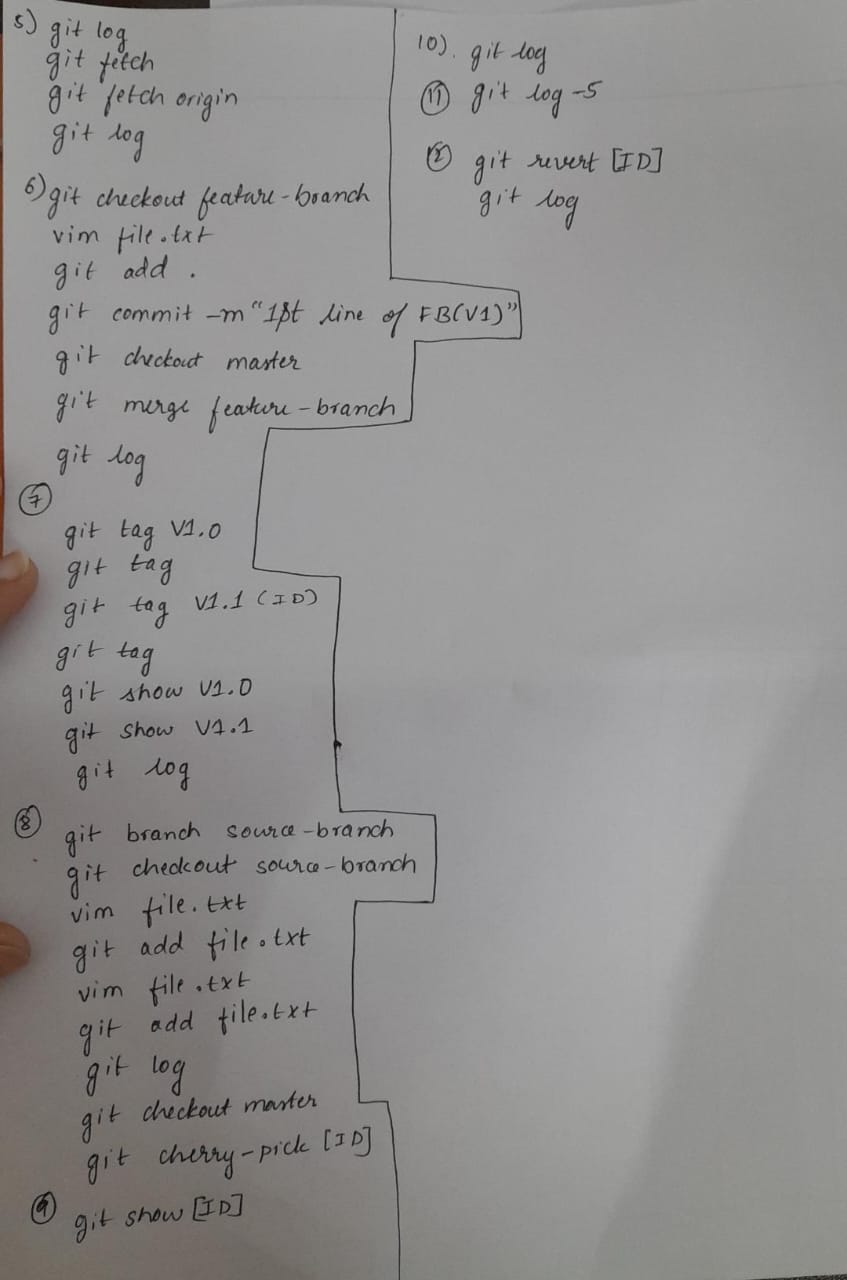 5) git log
git fetch
git fetch origin
git log
6) git checkout feature-branch
vim file.txt
git add .
git commit -m "1st line of FB(V1)"
git checkout master
git merge feature-branch
git log
7
git tag V1.0
git tag
git tag V1.1 (ID)
git tag
git show V1.0
git show V1.1
git log
8
git branch source-branch
git checkout source-branch
vim file.txt
git add file.txt
vim file.txt
git add file.txt
git log
git checkout master
git cherry-pick [ID]
9 git show [ID]
10). git log
11 git log -5
12 git revert [ID]
git log